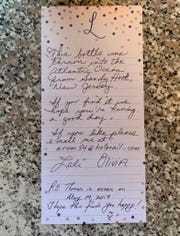 L
This bottle was
thrown into the
Atlantic Ocean
from Sandy Hook,
New Jersey.
If you find it just
hope you're having
a good day.
If you like please
email me at!
@hotmail.com
Lali Oliva
P.S. Thrown in ocean on
May 19, 2019
Hope this finds you happy!